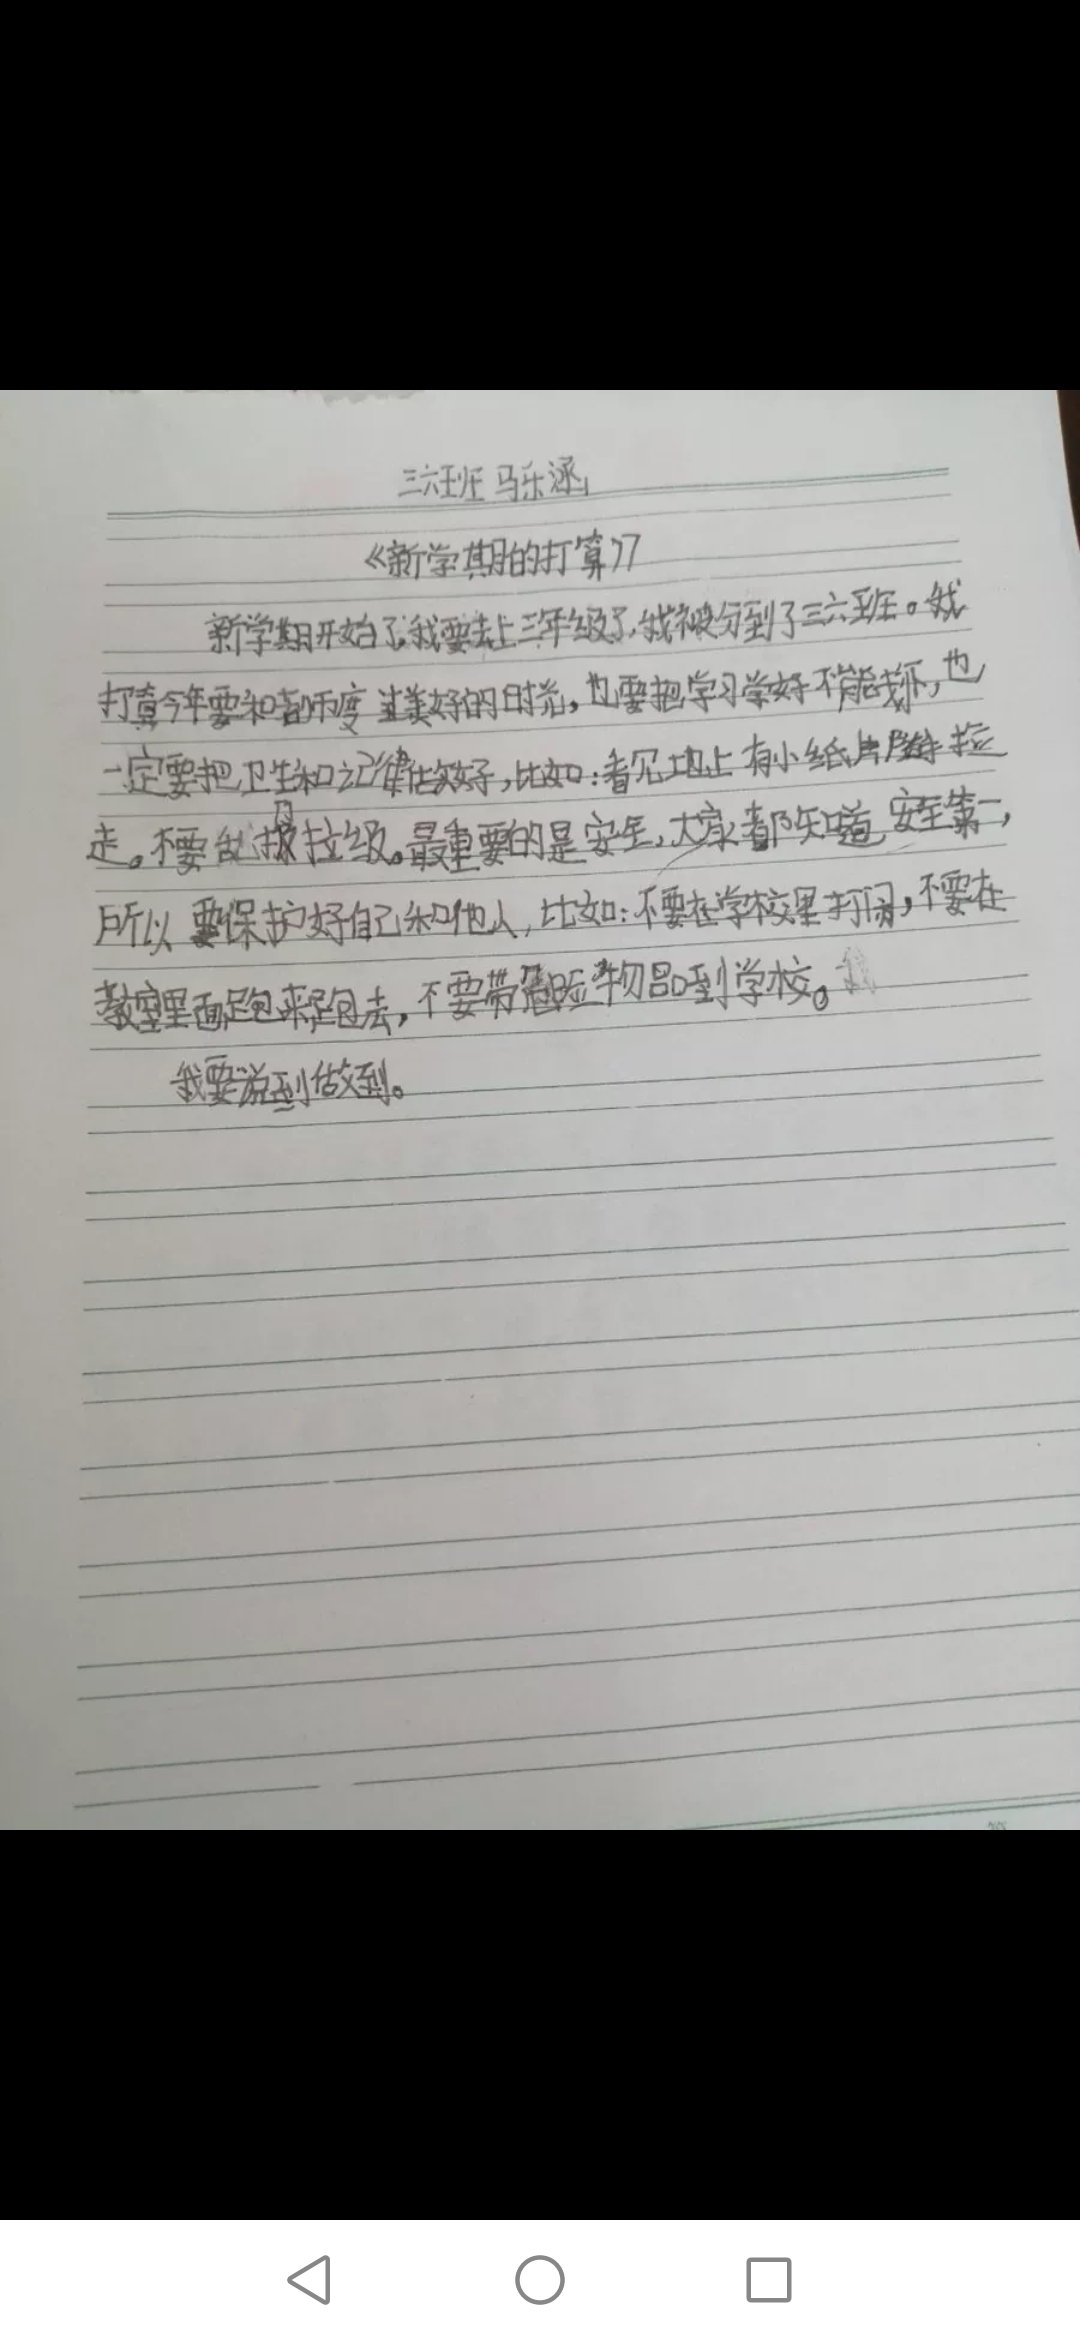 三六班 马乐涵
《新学期的打算》
新学期开始了,我要去上三年级了,我被分到了三六班。我
打算今年要和老师度过美好的时光,也要把学习学好不能贪玩,也
一定要把卫生和记律做好,比如:看见地上有小纸片随手捡
走。不要乱扔拉级。最重要的是安全,大家都知道,安全第一,
所以要保护好自己和他人,比如:不要在学校里打闹,不要在
教室里面跑来跑去,不要带危险物品到学校。
我要说到做到。